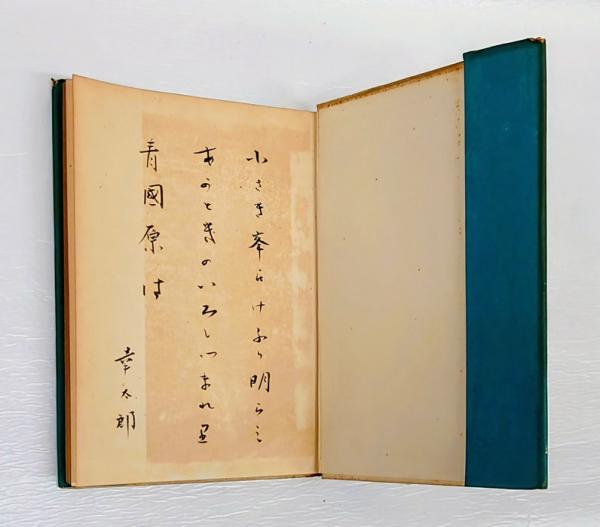 小さき峯らけふ明らミ
あかと幾のいろしつまれ里
青國原は
幸太郎